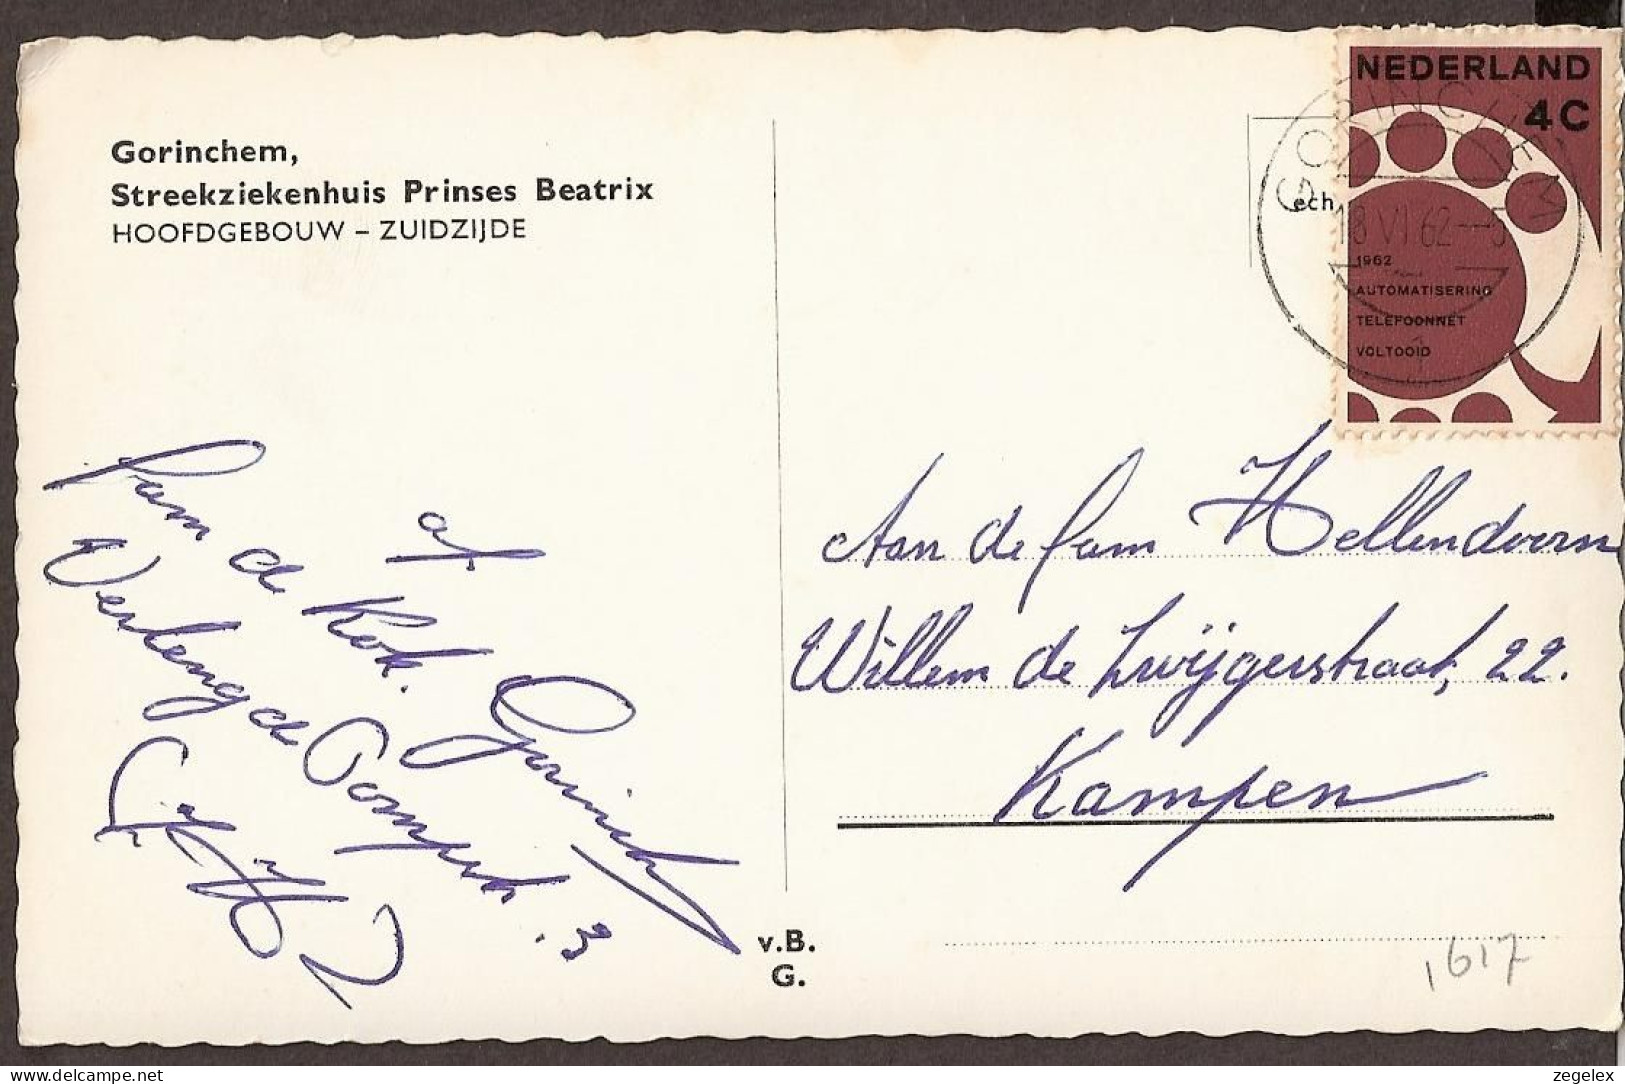 Gorinchem,
Streekziekenhuis Prinses Beatrix
HOOFDGEBOUW – ZUIDZIJDE
NEDERLAND
4C
GORINCHEM
ech
18 VI 62 - 5
1962
AUTOMATISERING
TELEFOONNET
VOLTOOID
1
af
fam de Kok.
Verlengde
3
Aan de fam Hellendoorn
Willem de Zwijgerstraat, 22.
Kampen
v.B.
G.
1617
zegelex